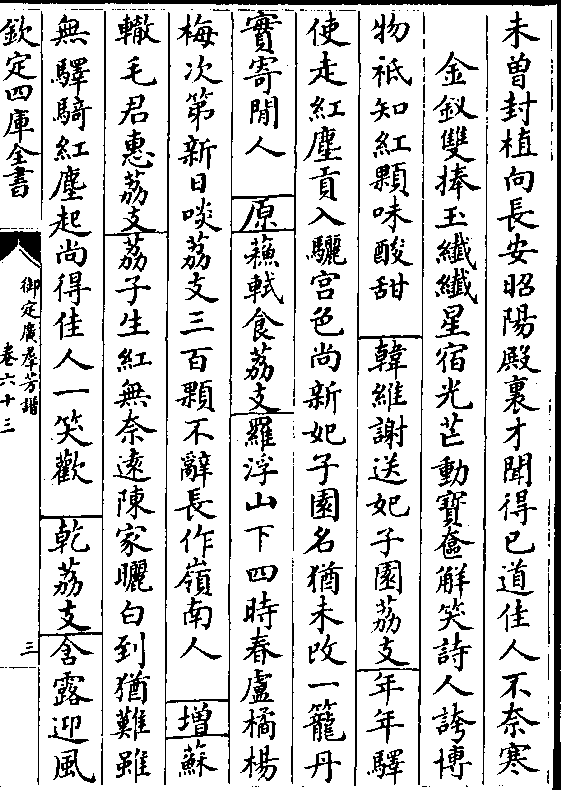 未曽封植向長安昭陽殿裏才聞得已道佳人不奈寒
金釵雙捧玉纖纖星宿光芒動寶奩解笑詩人誇博
物祗知紅顆味酸甜　韓維謝送妃子園荔支年年驛
使走紅塵貢入驪宮色尚新妃子園名猶未改一籠丹
實寄閒人　原蘓軾食荔支羅浮山下四時春盧橘楊
梅次第新日啖荔支三百顆不辭長作嶺南人　增蘇
轍毛君惠荔支荔子生紅無奈遠陳家曬白到猶難雖
無驛騎紅塵起尚得佳人一笑歡　乾荔支含露迎風
欽定四庫全書
御定廣羣芳譜
卷六十三
三